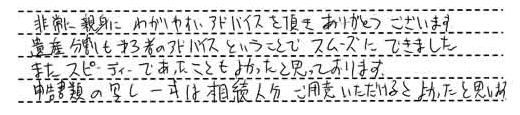 非常に親身に わかりやすい アドバイスを頂き ありがとうございます
遺産分割も第3者のアドバイスということで スムーズに できました
また スピーディーであったこともよかったと思っております。
申告書類の写し一式は相続人分ご用意いただけるとよかったと思います